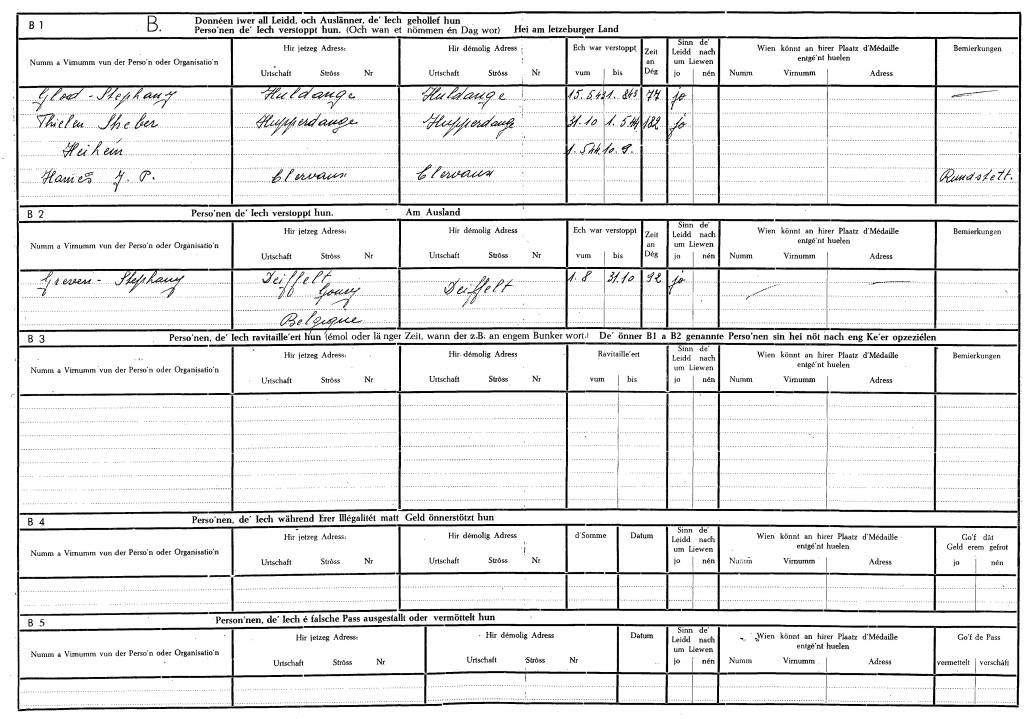 B 1
B.
Donnéen iwer all Leidd, och Auslänner, de' Iech gehollef hun
Perso'nen de' Iech verstoppt hun. (Och wan et nömmen én Dag wor) Hei am letzeburger Land
Numm a Virnumm vun der Perso'n oder Organisatio'n
Hir jetzeg Adress:
Urtschaft Ströss Nr
Hir démolig Adress
Urtschaft Ströss Nr
Ech war verstoppt
vum bis
Zeit an Dég
Sinn de' Leidd nach um Liewen
jo nén
Wien könnt an hirer Plaatz d'Médaille entgé'nt huelen
Numm Virnumm Adress
Bemierkungen
Glod - Stephany Huldange Huldange 15. 5.43 1. 8 43 77 jo
Thielen Hupperdange Hupperdange 31. 10 1. 5. 44 182 jo
1. 5 44 10. 9.
J. P. Clervaux Clervaux Rundstett.
B 2
Perso'nen de' Iech verstoppt hun. Am Ausland
Numm a Virnumm vun der Perso'n oder Organisatio'n
Hir jetzeg Adress:
Urtschaft Ströss Nr
Hir démolig Adress:
Urtschaft Ströss Nr
Ech war verstoppt
vum bis
Zeit an Dég
Sinn de' Leidd nach um Liewen
jo nén
Wien könnt an hirer Plaatz d'Médaille entgé'nt huelen
Numm Virnumm Adress
Bemierkungen
Greven - Stephany Deiffelt Deiffelt 1. 8 31.10 92 jo
Gouvy
Belgique
B 3
Perso'nen, de' Iech ravitaille'ert hun (émol oder länger Zeit, wann der z.B. an engem Bunker wort.) De' önner B1 a B2 genannte Perso'nen sin hei nöt nach eng Ke'er opzeziélen
Numm a Virnumm vun der Perso'n oder Organisatio'n
Hir jetzeg Adress:
Urtschaft Ströss Nr
Hir démolig Adress:
Urtschaft Ströss Nr
Ravitaille'ert
vum bis
Sinn de' Leidd nach um Liewen
jo nén
Wien könnt an hirer Plaatz d'Médaille entgé'nt huelen
Numm Virnumm Adress
Bemierkungen
B 4
Perso'nen, de' Iech während Erer Illégalitét matt Geld önnerstötzt hun
Numm a Virnumm vun der Perso'n oder Organisatio'n
Hir jetzeg Adress:
Urtschaft Ströss Nr
Hir démolig Adress
Urtschaft Ströss Nr
d'Somme
Datum
Sinn de' Leidd nach um Liewen
jo nén
Wien könnt an hirer Plaatz d'Médaille entgé'nt huelen
Numm Virnumm Adress
Go'f dât Geld erem gefrot
jo nén
B 5
Person'nen, de' Iech é falsche Pass ausgestallt oder vermöttelt hun
Numm a Virnumm vun der Perso'n oder Organisatio'n
Hir jetzeg Adress:
Urtschaft Ströss Nr
Hir démolig Adress
Urtschaft Ströss Nr
Datum
Sinn de' Leidd nach um Liewen
jo nén
Wien könnt an hirer Plaatz d'Médaille entgé'nt huelen
Numm Virnumm Adress
Go'f de Pass
vermettelt verschâft